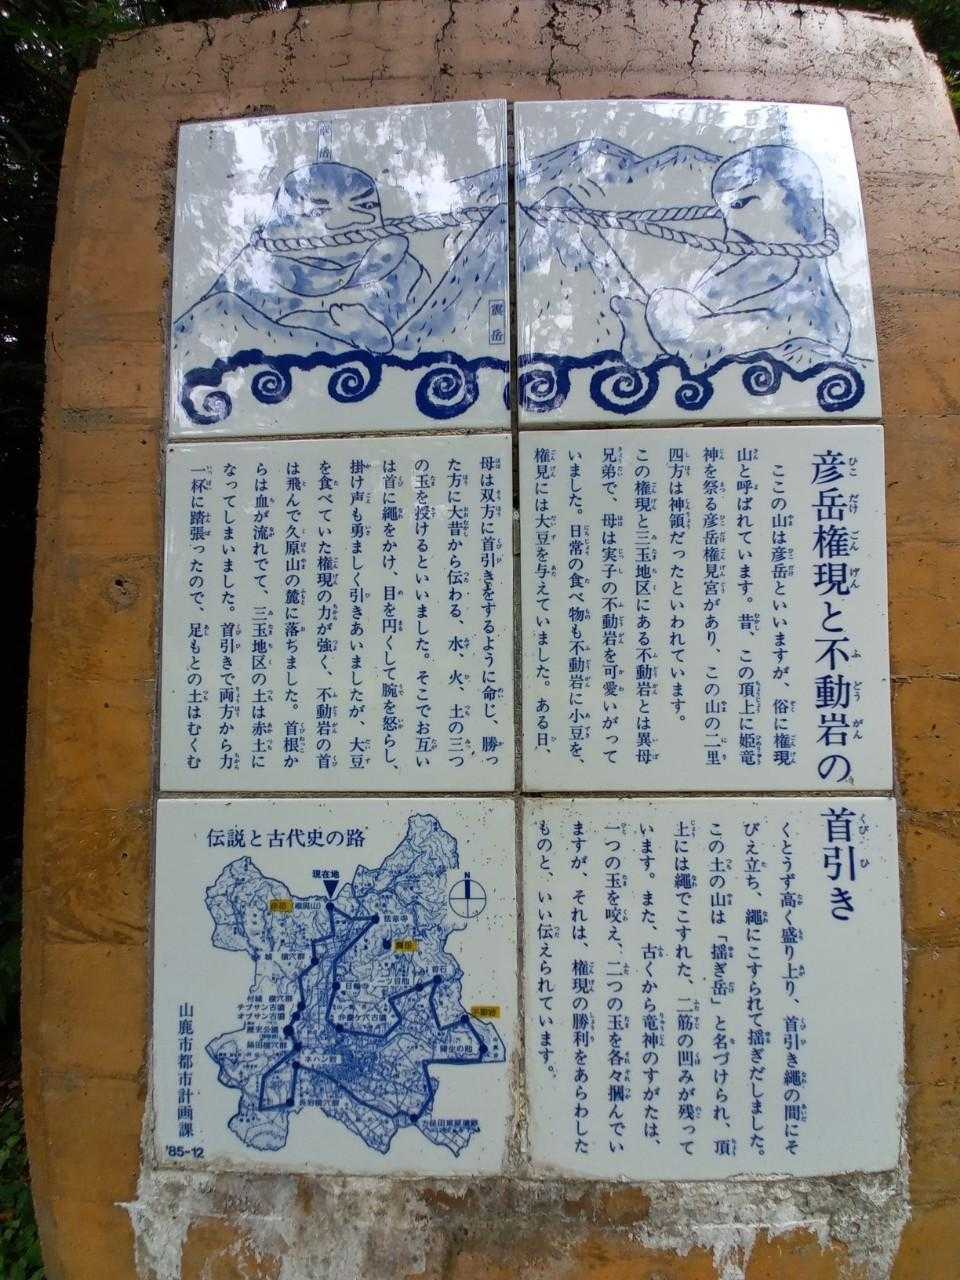 彦岳
震岳
彦岳権現と不動岩の首引き
ここの山は彦岳といいますが、俗に権現
山と呼ばれています。昔、この頂上に姫竜
神を祭る彦岳権見宮があり、この山の二里
四方は神領だったといわれています。
この権現と三玉地区にある不動岩とは異母
兄弟で、母は実子の不動岩を可愛いがって
いました。日常の食べ物も不動岩に小豆を、
権見には大豆を与えていました。ある日、
母は双方に首引きをするように命じ、勝っ
た方に大昔から伝わる、水、火、土の三つ
の玉を授けるといいました。そこでお互い
は首に縄をかけ、目を円くして腕を怒らし、
掛け声も勇ましく引きあいましたが、大豆
を食べていた権現の力が強く、不動岩の首
は飛んで久原山の麓に落ちました。首根か
らは血が流れでて、三玉地区の土は赤土に
なってしまいました。首引きで両方から力
一杯に踏張ったので、足もとの土はむくむ
くとうず高く盛り上り、首引き縄の間にそ
びえ立ち、縄にこすられて揺ぎだしました。
この土の山は「揺ぎ岳」と名づけられ、頂
上には縄でこすれた、二筋の凹みが残って
います。また、古くから竜神のすがたは、
一つの玉を咬え、二つの玉を各々摑んでい
ますが、それは、権現の勝利をあらわした
ものと、いい伝えられています。
伝説と古代史の路
現在地
彦岳(権現山)
N
日輪寺
震岳
一ツ目神社
首石
不動岩
城 横穴群
付城 横穴群
チブサン古墳
オブサン古墳
歴史公園
鍋田横穴群
弁慶ケ穴古墳
長岩横穴群
方保田東原遺跡
山鹿市都市計画課
'85-12